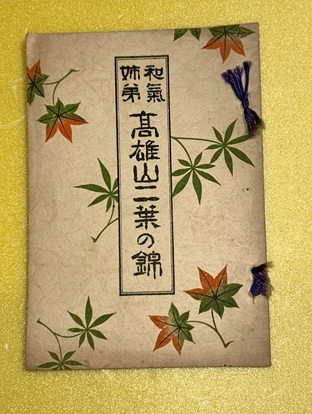 和氣
姉弟
高雄山二葉の錦